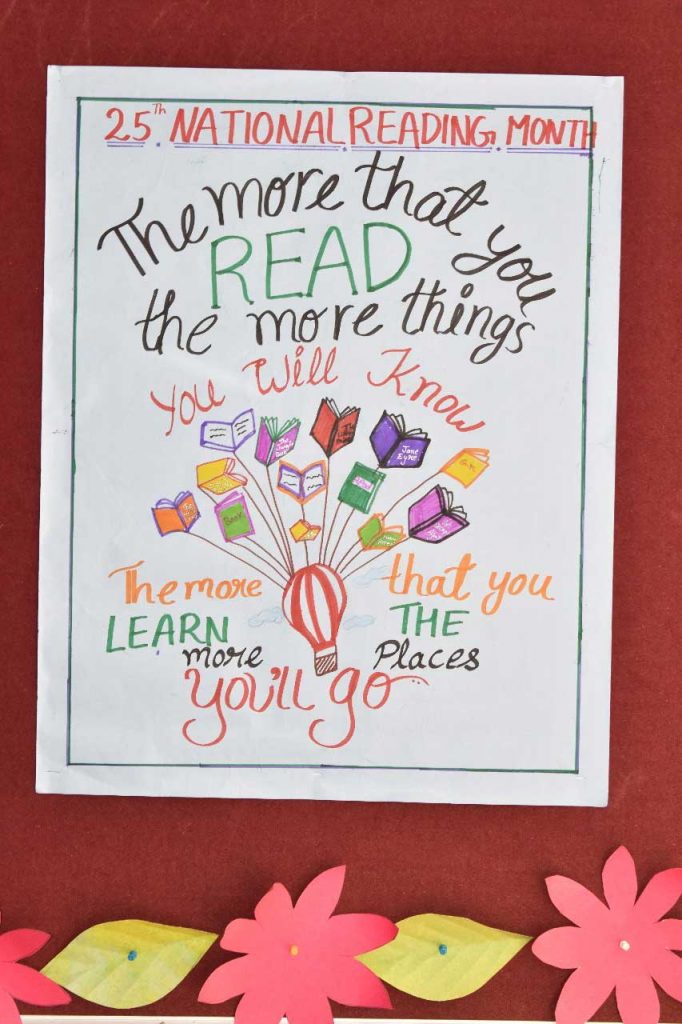 25Th NATIONAL READING MONTH
The more that you
READ
the more things
You Will Know
The Jungle Book
Jane Eyre
Book
The more that you
LEARN THE
more Places
You'll go